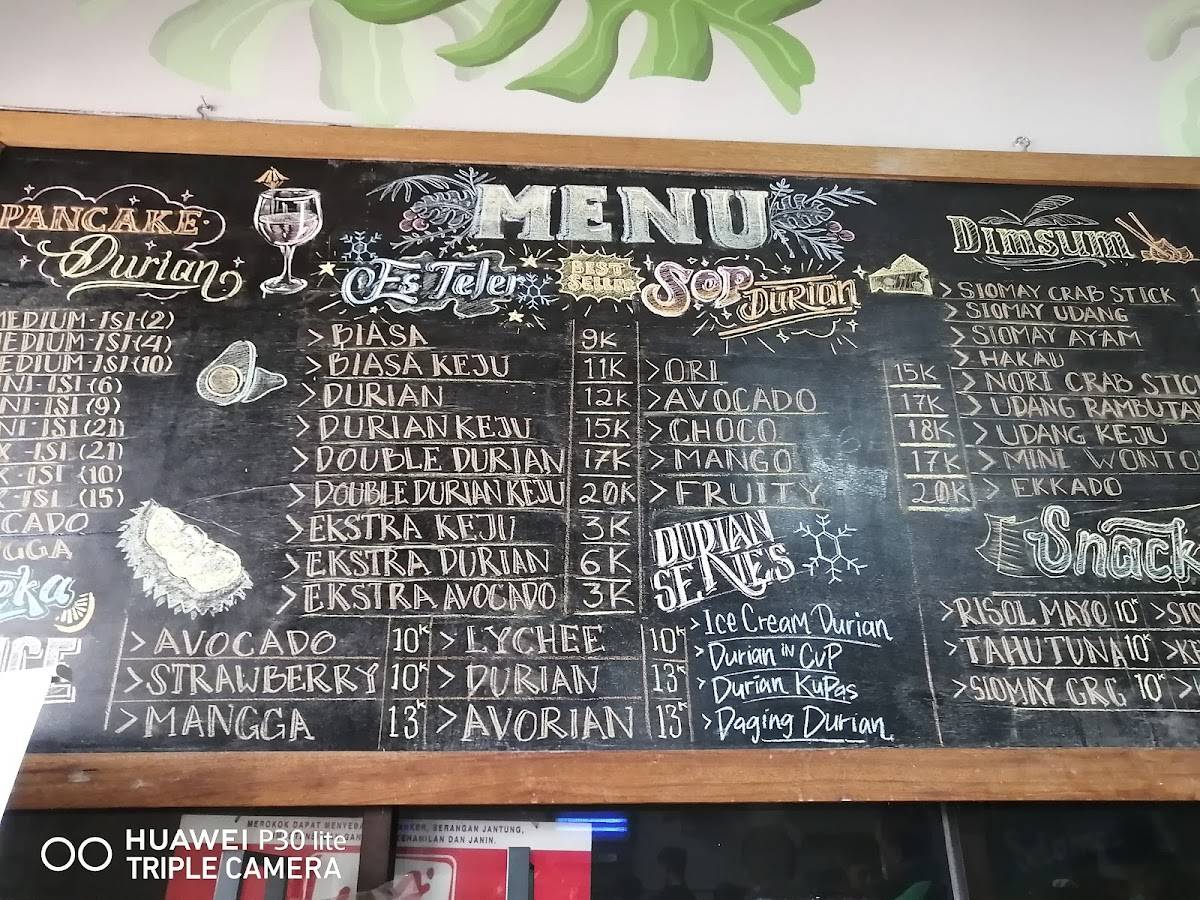 MENU
PANCAKE
Durian
MEDIUM-ISI (2)
MEDIUM-ISI (4)
MEDIUM-ISI (10)
NI-ISI (6)
NI-ISI (9)
NI-ISI (21)
X-ISI (21)
-ISI (10)
X-ISI (15)
OCADO
NGGA
eka
ICE
Es Teler
BEST SELLER
> BIASA 9K
> BIASA KEJU 11K
> DURIAN 12K
> DURIAN KEJU 15K
> DOUBLE DURIAN 17K
> DOUBLE DURIAN KEJU 20K
> EKSTRA KEJU 3K
> EKSTRA DURIAN 6K
> EKSTRA AVOCADO 3K
> AVOCADO 10K > LYCHEE 10K
> STRAWBERRY 10K > DURIAN 13K
> MANGGA 13K > AVORIAN 13K
SOP
DURIAN
> ORI 15K
> AVOCADO 17K
> CHOCO 18K
> MANGO 17K
> FRUITY 20K
DURIAN
SERIES
> Ice Cream Durian
> Durian IN CUP
> Durian Kupas
> Daging Durian
DIMSUM
> SIOMAY CRAB STICK
> SIOMAY UDANG
> SIOMAY AYAM
> HAKAU
> NORI CRAB STIC
> UDANG RAMBUTA
> UDANG KEJU
> MINI WONTO
> EKKADO
Snack
> RISOL MAYO 10K > SIO
> TAHU TUNA 10K > KE
> SIOMAY GRG 10K >
MEROKOK DAPAT MENYEBA ANKER, SERANGAN JANTUNG,
KEHAMILAN DAN JANIN.
HUAWEI P30 lite
TRIPLE CAMERA